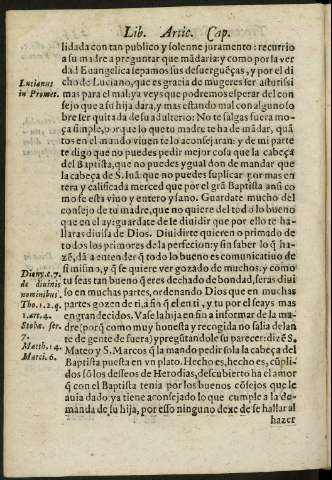 Lib. Artic. Cap.
lidada con tan publico y solenne juramento: recurrio
a su madre a preguntar que mādaria: y como por la ver
dad Euangelica sepamos sus desuergueças, y por el di
cho de Luciano, que es gracia de mugeres ser astutissi
mas para el mal: ya veys que podremos esperar del con
sejo que a su hija dara, y mas estando mal con alguno so
bre ser quitada de su adulterio: No te salgas fuera mo-
ça simple, porque lo que tu madre te ha de mādar, quā
tos en el mundo viuen te lo aconsejaran: y de mi parte
te digo que no puedes pedir mejor cosa que la cabeça
del Baptista, que no puedes ygual don de mandar que
la cabeça de S. Iuā: que no puedes suplicar por mas en
tera y calificada merced que por el grā Baptista ansi co
mo se esta viuo y entero y sano. Guardate mucho del
consejo de tu madre, que no quiere del todo lo bueno
que en el ay: guardate de le diuidir que por ello te ha-
llaras diuisa de Dios. Diuidirte quieren o priman de
todos los primores de la perfecion: y sin saber lo q̄ ha
zē, dā a entender q̄ todo lo bueno es comunicatiuo de
si mismo, y q̄ se quiere ver gozado de muchos: y como
tu seas tan bueno q̄ eres dechado de bondad, seras diui
so en muchas partes, ordenando Dios que en muchas
partes gozen de ti, a fin q̄ el en ti, y tu por el seays mas
engrandecidos. Vase la hija en fin a informar de la ma-
dre (porq̄ como muy honesta y recogida no salia delan
te de gente de fuera) y pregūtandole su parecer: dizē S.
Mateo y S. Marcos q̄ la mando pedir sola la cabeça del
Baptista puesta en vn plato. Hecho es, hecho es, cūpli-
dos sō los desseos de Herodias, descubierto ha el amor
q̄ con el Baptista tenia por los buenos cōsejos que le
auia dado: ya tiene aconsejado lo que cumple a la de-
manda de su hija, por esso ninguno dexe de se hallar al
hazer
Lucianus
in Promet.
Diony. c. 7.
de diuinis
nominibus.
Tho. 1. 2. q.
1. art. 4.
Stobæ. ser.
7.
Matth. 14.
Marci. 6.